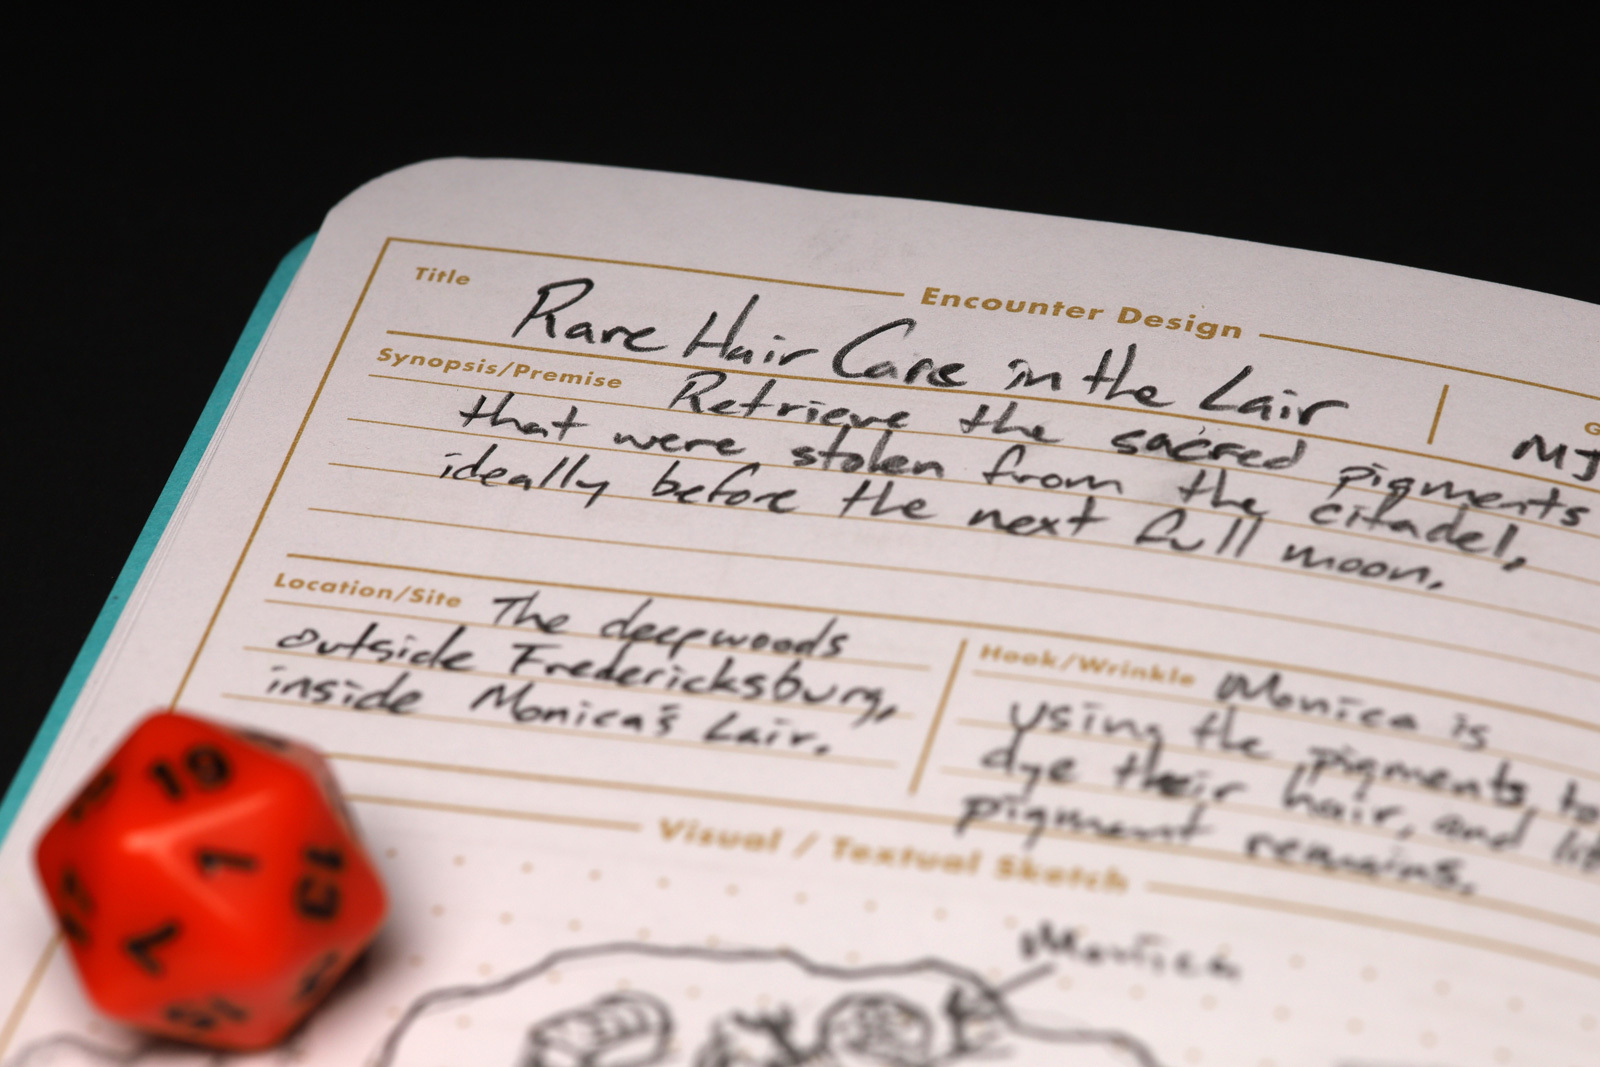 Encounter Design
Title
Rare Hair Care in the Lair
MJ
Synopsis/Premise Retrieve the sacred pigments
that were stolen from the citadel,
ideally before the next full moon.
Location/Site The deepwoods
outside Fredericksburg,
inside Monica's Lair.
Hook/Wrinkle Monica is
using the pigments to
dye their hair, and
pigment remains.
Visual / Textual Sketch
Monica
19
1
13
7